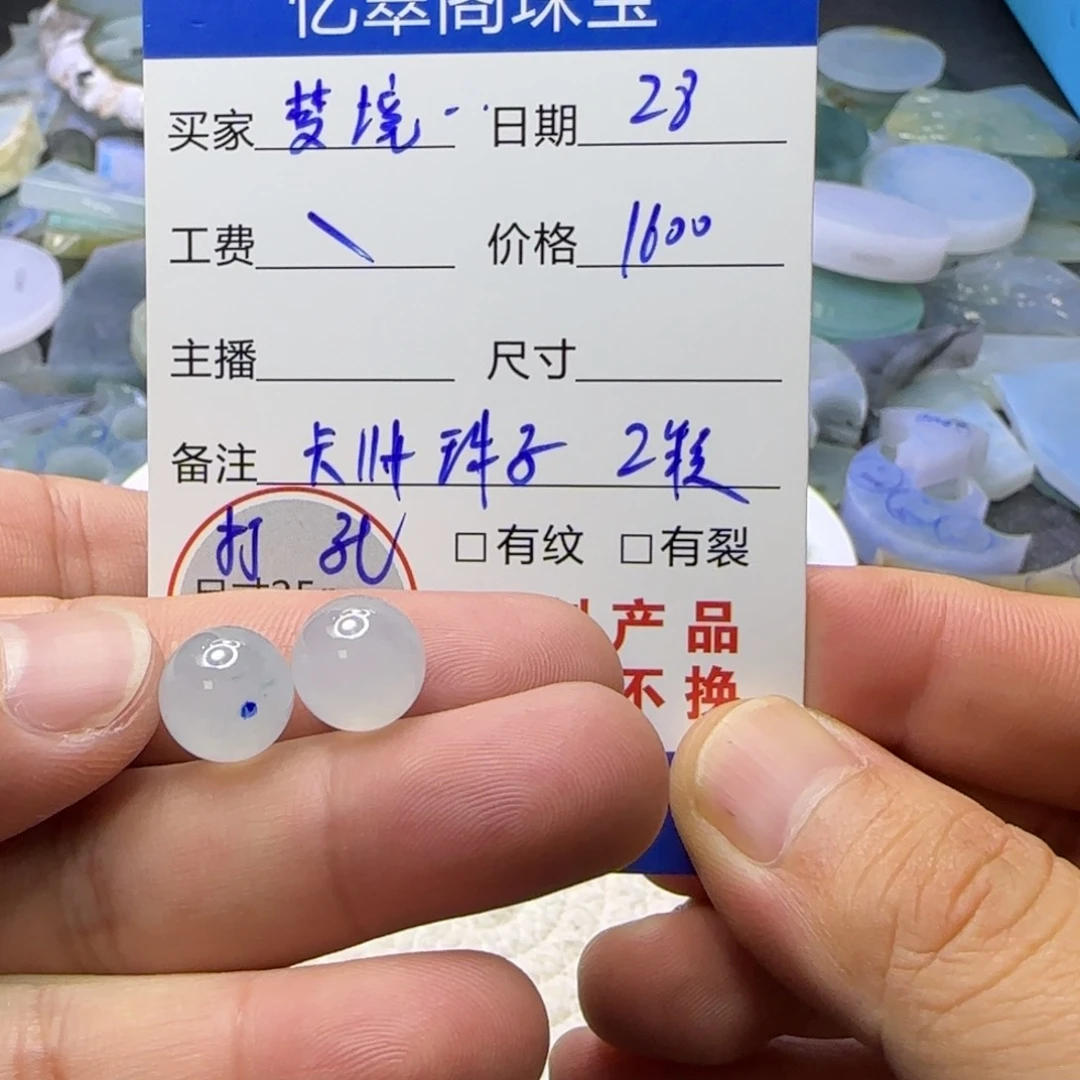 亿翠阁珠宝
买家 梦境 日期 28
工费 \ 价格 1600
主播 尺寸
备注 卡 珠子 2颗
打孔 □有纹 □有裂
尺寸35
产品
不换